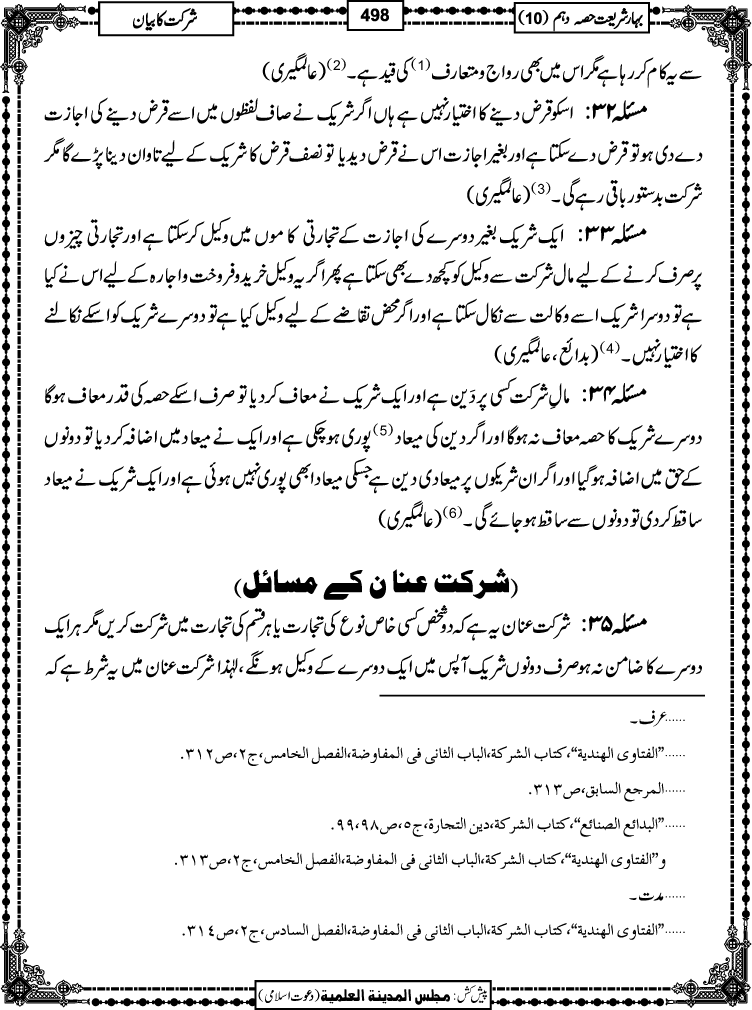 بہار شریعت حصہ دہم (10)
498
شرکت کا بیان
سے یہ کام کررہا ہے مگر اس میں بھی رواج و متعارف (1) کی قید ہے۔ (2) (عالمگیری)
مسئلہ ۳۲: اسکو قرض دینے کا اختیار نہیں ہے ہاں اگر شریک نے صاف لفظوں میں اسے قرض دینے کی اجازت
دے دی ہو تو قرض دے سکتا ہے اور بغیر اجازت اس نے قرض دیدیا تو نصف قرض کا شریک کے لیے تاوان دینا پڑے گا مگر
شرکت بدستور باقی رہے گی۔ (3) (عالمگیری)
مسئلہ ۳۳: ایک شریک بغیر دوسرے کی اجازت کے تجارتی کاموں میں وکیل کرسکتا ہے اور تجارتی چیزوں
پر صرف کرنے کے لیے مال شرکت سے وکیل کو کچھ دے بھی سکتا ہے پھر اگر یہ وکیل خرید و فروخت و اجارہ کے لیے اس نے کیا
ہے تو دوسرا شریک اسے وکالت سے نکال سکتا ہے اور اگر محض تقاضے کے لیے وکیل کیا ہے تو دوسرے شریک کو اسکے نکالنے
کا اختیار نہیں۔ (4) (بدائع، عالمگیری)
مسئلہ ۳۴: مالِ شرکت کسی پر دَین ہے اور ایک شریک نے معاف کردیا تو صرف اسکے حصہ کی قدر معاف ہوگا
دوسرے شریک کا حصہ معاف نہ ہوگا اور اگر دین کی میعاد (5) پوری ہوچکی ہے اور ایک نے میعاد میں اضافہ کردیا تو دونوں
کے حق میں اضافہ ہوگیا اور اگر ان شریکوں پر میعادی دین ہے جسکی میعاد ابھی پوری نہیں ہوئی ہے اور ایک شریک نے میعاد
ساقط کردی تو دونوں سے ساقط ہو جائے گی۔ (6) (عالمگیری)
(شرکت عنان کے مسائل)
مسئلہ ۳۵: شرکت عنان یہ ہے کہ دو شخص کسی خاص نوع کی تجارت یا ہر قسم کی تجارت میں شرکت کریں مگر ہر ایک
دوسرے کا ضامن نہ ہو صرف دونوں شریک آپس میں ایک دوسرے کے وکیل ہونگے، لہٰذا شرکت عنان میں یہ شرط ہے کہ
......عرف۔
......”الفتاوی الهندیة“،کتاب الشركة،الباب الثانی فی المفاوضة،الفصل الخامس،ج۲،ص۳۱۲.
......المرجع السابق،ص۳۱۳.
......”البدائع الصنائع“،کتاب الشركة،دین التجارة،ج۵،ص۹۸،۹۹.
و”الفتاوی الهندیة“،کتاب الشركة،الباب الثانی فی المفاوضة،الفصل الخامس،ج۲،ص۳۱۳.
......مدت۔
......”الفتاوی الهندیة“،کتاب الشركة،الباب الثانی فی المفاوضة،الفصل السادس،ج۲،ص۳۱٤.
پیش کش: مجلس المدینة العلمیة (دعوت اسلامی)